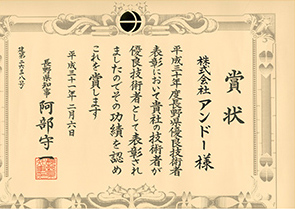 賞状
株式会社 アンドー 様
平成三十年度長野県優良技術者
表彰において貴社の技術者が
優良技術者として表彰され
ましたのでその功績を認め
これを賞します
平成三十一年二月六日
長野県知事 阿部守一